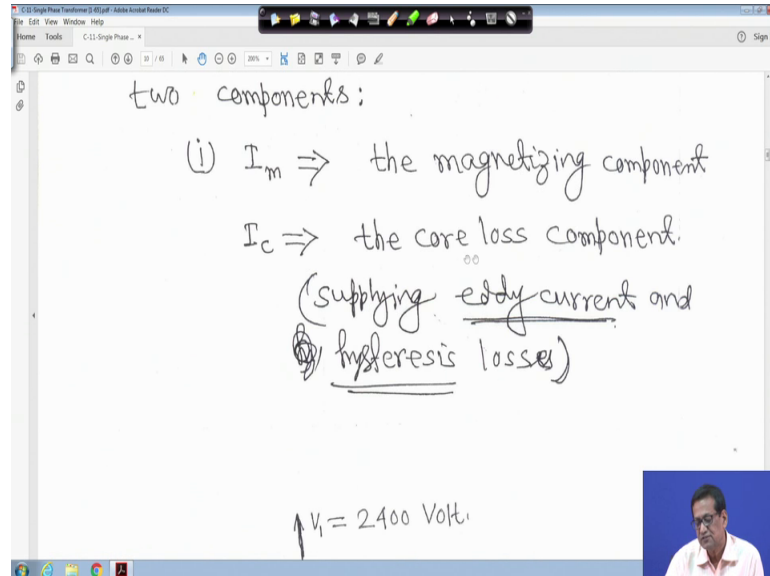 C-11-Single Phase Transformer [1-65].pdf - Adobe Acrobat Reader DC
File Edit View Window Help
Home Tools C-11-Single Phase ... × Sign
10 / 65 200%
two components:
(i) Im ⇒ the magnetizing component
Ic ⇒ the core loss component.
(supplying eddy current and
hysteresis losses)
V1 = 2400 Volt.